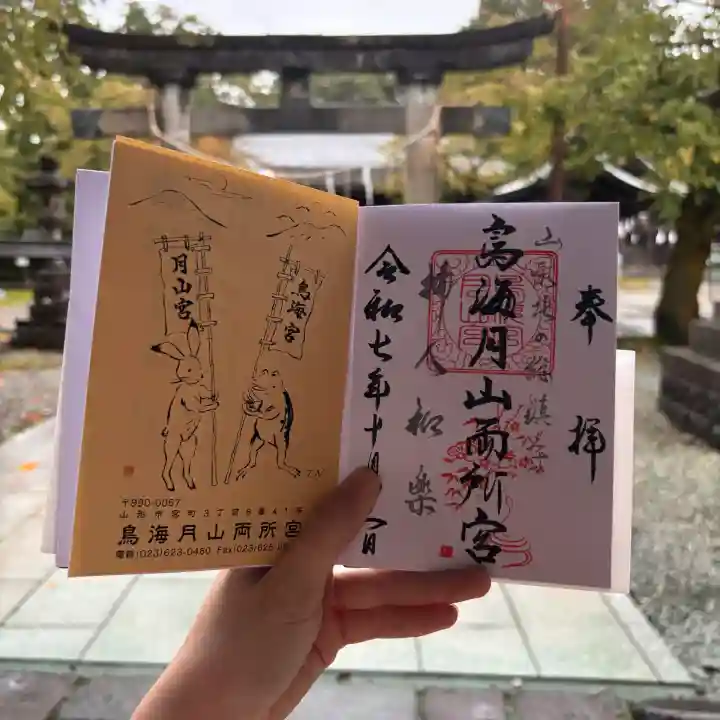 奉拝
鳥海月山両所宮
令和七年十月
月山宮
鳥海宮
〒990-0057
山形市宮町3丁目8番41号
鳥海月山両所宮
電話(023)623-0460 Fax(023)625